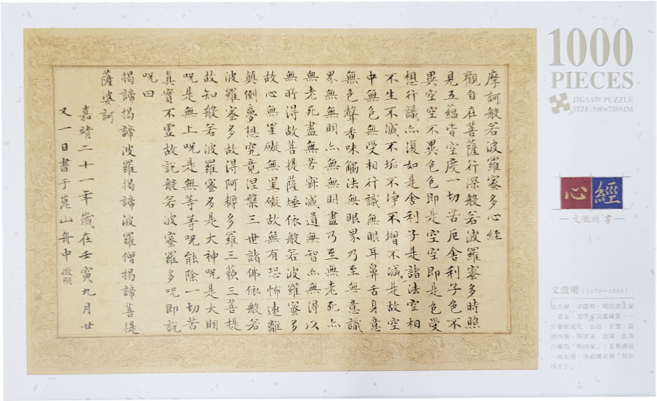 摩訶般若波羅蜜多心經
觀自在菩薩行深般若波羅蜜多時照
見五蘊皆空度一切苦厄舍利子色不
異空空不異色色即是空空即是色受
想行識亦復如是舍利子是諸法空相
不生不滅不垢不淨不增不減是故空
中無色無受相行識無眼耳鼻舌身意
無色聲香味觸法無眼界乃至無意識
界無無明亦無無明盡乃至無老死亦
無老死盡無苦寂滅道無智亦無得以
無所得故菩提薩埵依般若波羅蜜多
故心無罣礙無罣礙故無有恐怖遠離
顛倒夢想究竟涅槃三世諸佛依般若
波羅蜜多故得阿耨多羅三藐三菩提
故知般若波羅蜜多是大神呪是大明
呪是無上呪是無等等呪能除一切苦
真實不虛故說般若波羅蜜多呪即說
呪曰
揭諦揭諦波羅揭諦波羅僧揭諦菩提
薩婆訶
嘉靖二十一年歲在壬寅九月廿
又一日書于崑山舟中 徵明
1000
PIECES
JIGSAW PUZZLE
SIZE:500x750MM
心經
文徵明 書
文徵明(1470-1559)